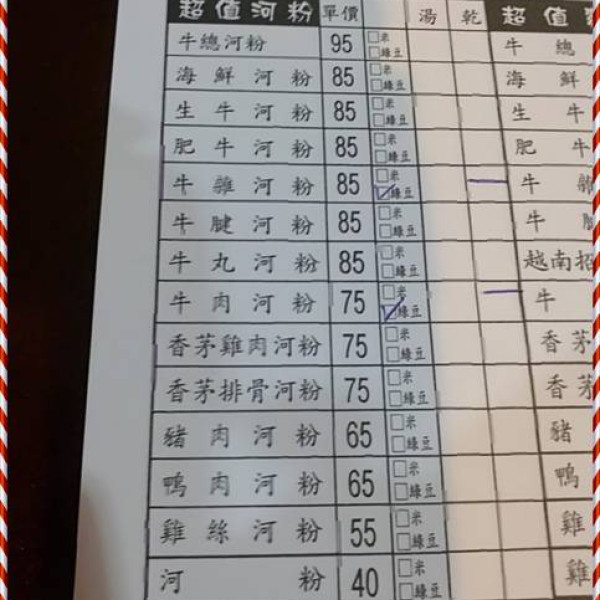 超值河粉 單價 湯 乾 超值
牛總河粉 95 □米 □綠豆 牛總
海鮮河粉 85 □米 □綠豆 海鮮
生牛河粉 85 □米 □綠豆 生牛
肥牛河粉 85 □米 □綠豆 肥牛
牛雜河粉 85 □米 ☑綠豆 一 牛雜
牛腱河粉 85 □米 □綠豆 牛
牛丸河粉 85 □米 □綠豆 越南招
牛肉河粉 75 □米 ☑綠豆 一 牛
香茅雞肉河粉 75 □米 □綠豆 香茅
香茅排骨河粉 75 □米 □綠豆 香茅
豬肉河粉 65 □米 □綠豆 豬
鴨肉河粉 65 □米 □綠豆 鴨
雞絲河粉 55 □米 □綠豆 雞
河粉 40 □米 □綠豆 雞